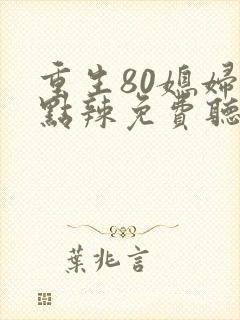 重生80媳婦
點辣免費聽
葉兆言